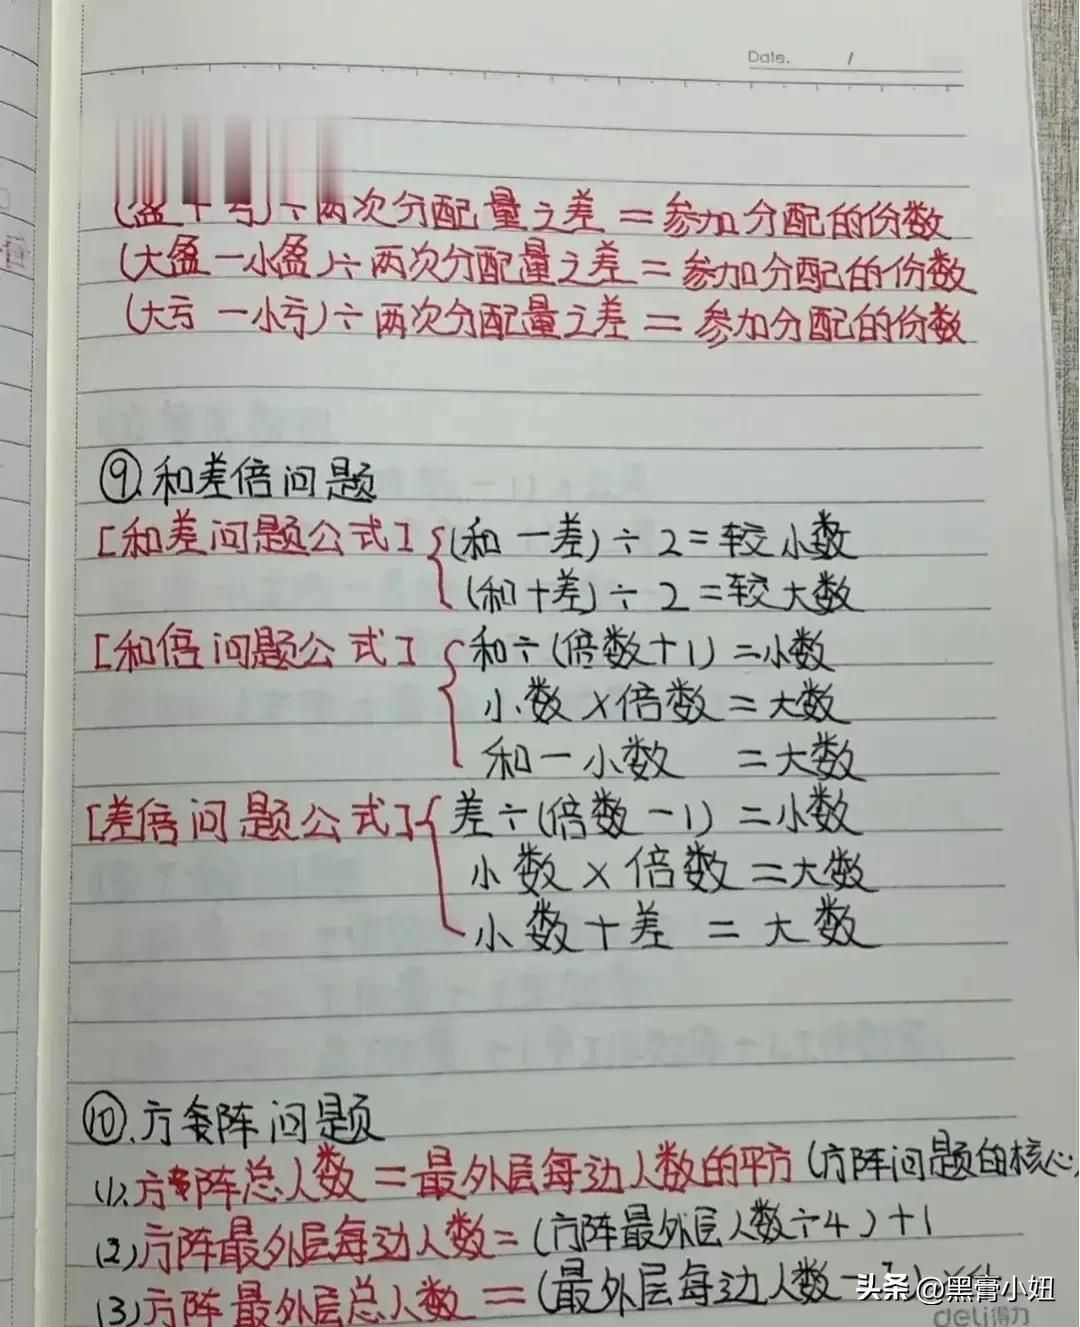 Date. /
(盈+亏)÷两次分配量之差=参加分配的份数
(大盈-小盈)÷两次分配量之差=参加分配的份数
(大亏-小亏)÷两次分配量之差=参加分配的份数
⑨.和差倍问题
[和差问题公式] (和-差)÷2=较小数
(和+差)÷2=较大数
[和倍问题公式] 和÷(倍数+1)=小数
小数×倍数=大数
和-小数=大数
[差倍问题公式] 差÷(倍数-1)=小数
小数×倍数=大数
小数+差=大数
⑩.方阵问题
(1).方阵总人数=最外层每边人数的平方(方阵问题的核心)
(2)方阵最外层每边人数=(方阵最外层人数÷4)+1
(3)方阵最外层总人数=(最外层每边人数-
头条@黑膏小妞
deli得力